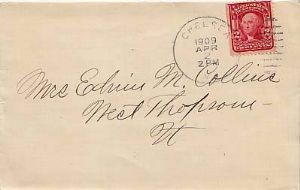 CHELSEA
1909
APR
2 PM
Mrs Edwin M. Collins
West Thopsom
Vt